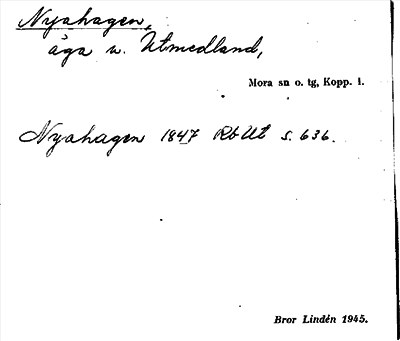 Nyahagen,
äga u. Utmedland,
Mora sn o. tg, Kopp. l.
Nyahagen 1847 RbUt s. 636.
Bror Lindén 1945.